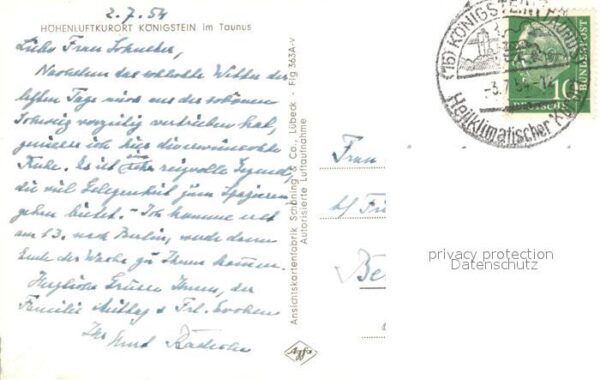 2.7.54
HÖHENLUFTKURORT KÖNIGSTEIN im Taunus
Liebe Frau Schneider,
Nachdem das schlechte Wetter der
letzten Tage mich aus der schönen
Schweiz vorzeitig vertrieben hat,
geniesse ich hier die erwünschte
Ruhe. Es ist eine reizvolle Gegend,
die viel Gelegenheit zum Spazieren
gehen bietet. - Ich komme erst
am 13. nach Berlin, werde dann
Ende der Woche zu Ihnen kommen.
Herzliche Grüsse Ihnen, der
Familie & Frl.
Ihr
Ansichtskartenfabrik Schöning & Co., Lübeck · Fig 363A-V
Autorisierte Luftaufnahme
Agfa
Frau
b/
Be
(16) KÖNIGSTEIN
-3.7.54
Heilklimatischer
10
DEUTSCHE
BUNDESPOST
privacy protection
Datenschutz